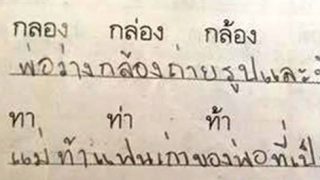 กลอง กล่อง กล้อง
พ่อวางกล้องถ่ายรูปและ
ทา ท่า ท้า
แม่ท้าแฟนเก่าของพ่อที่เป็